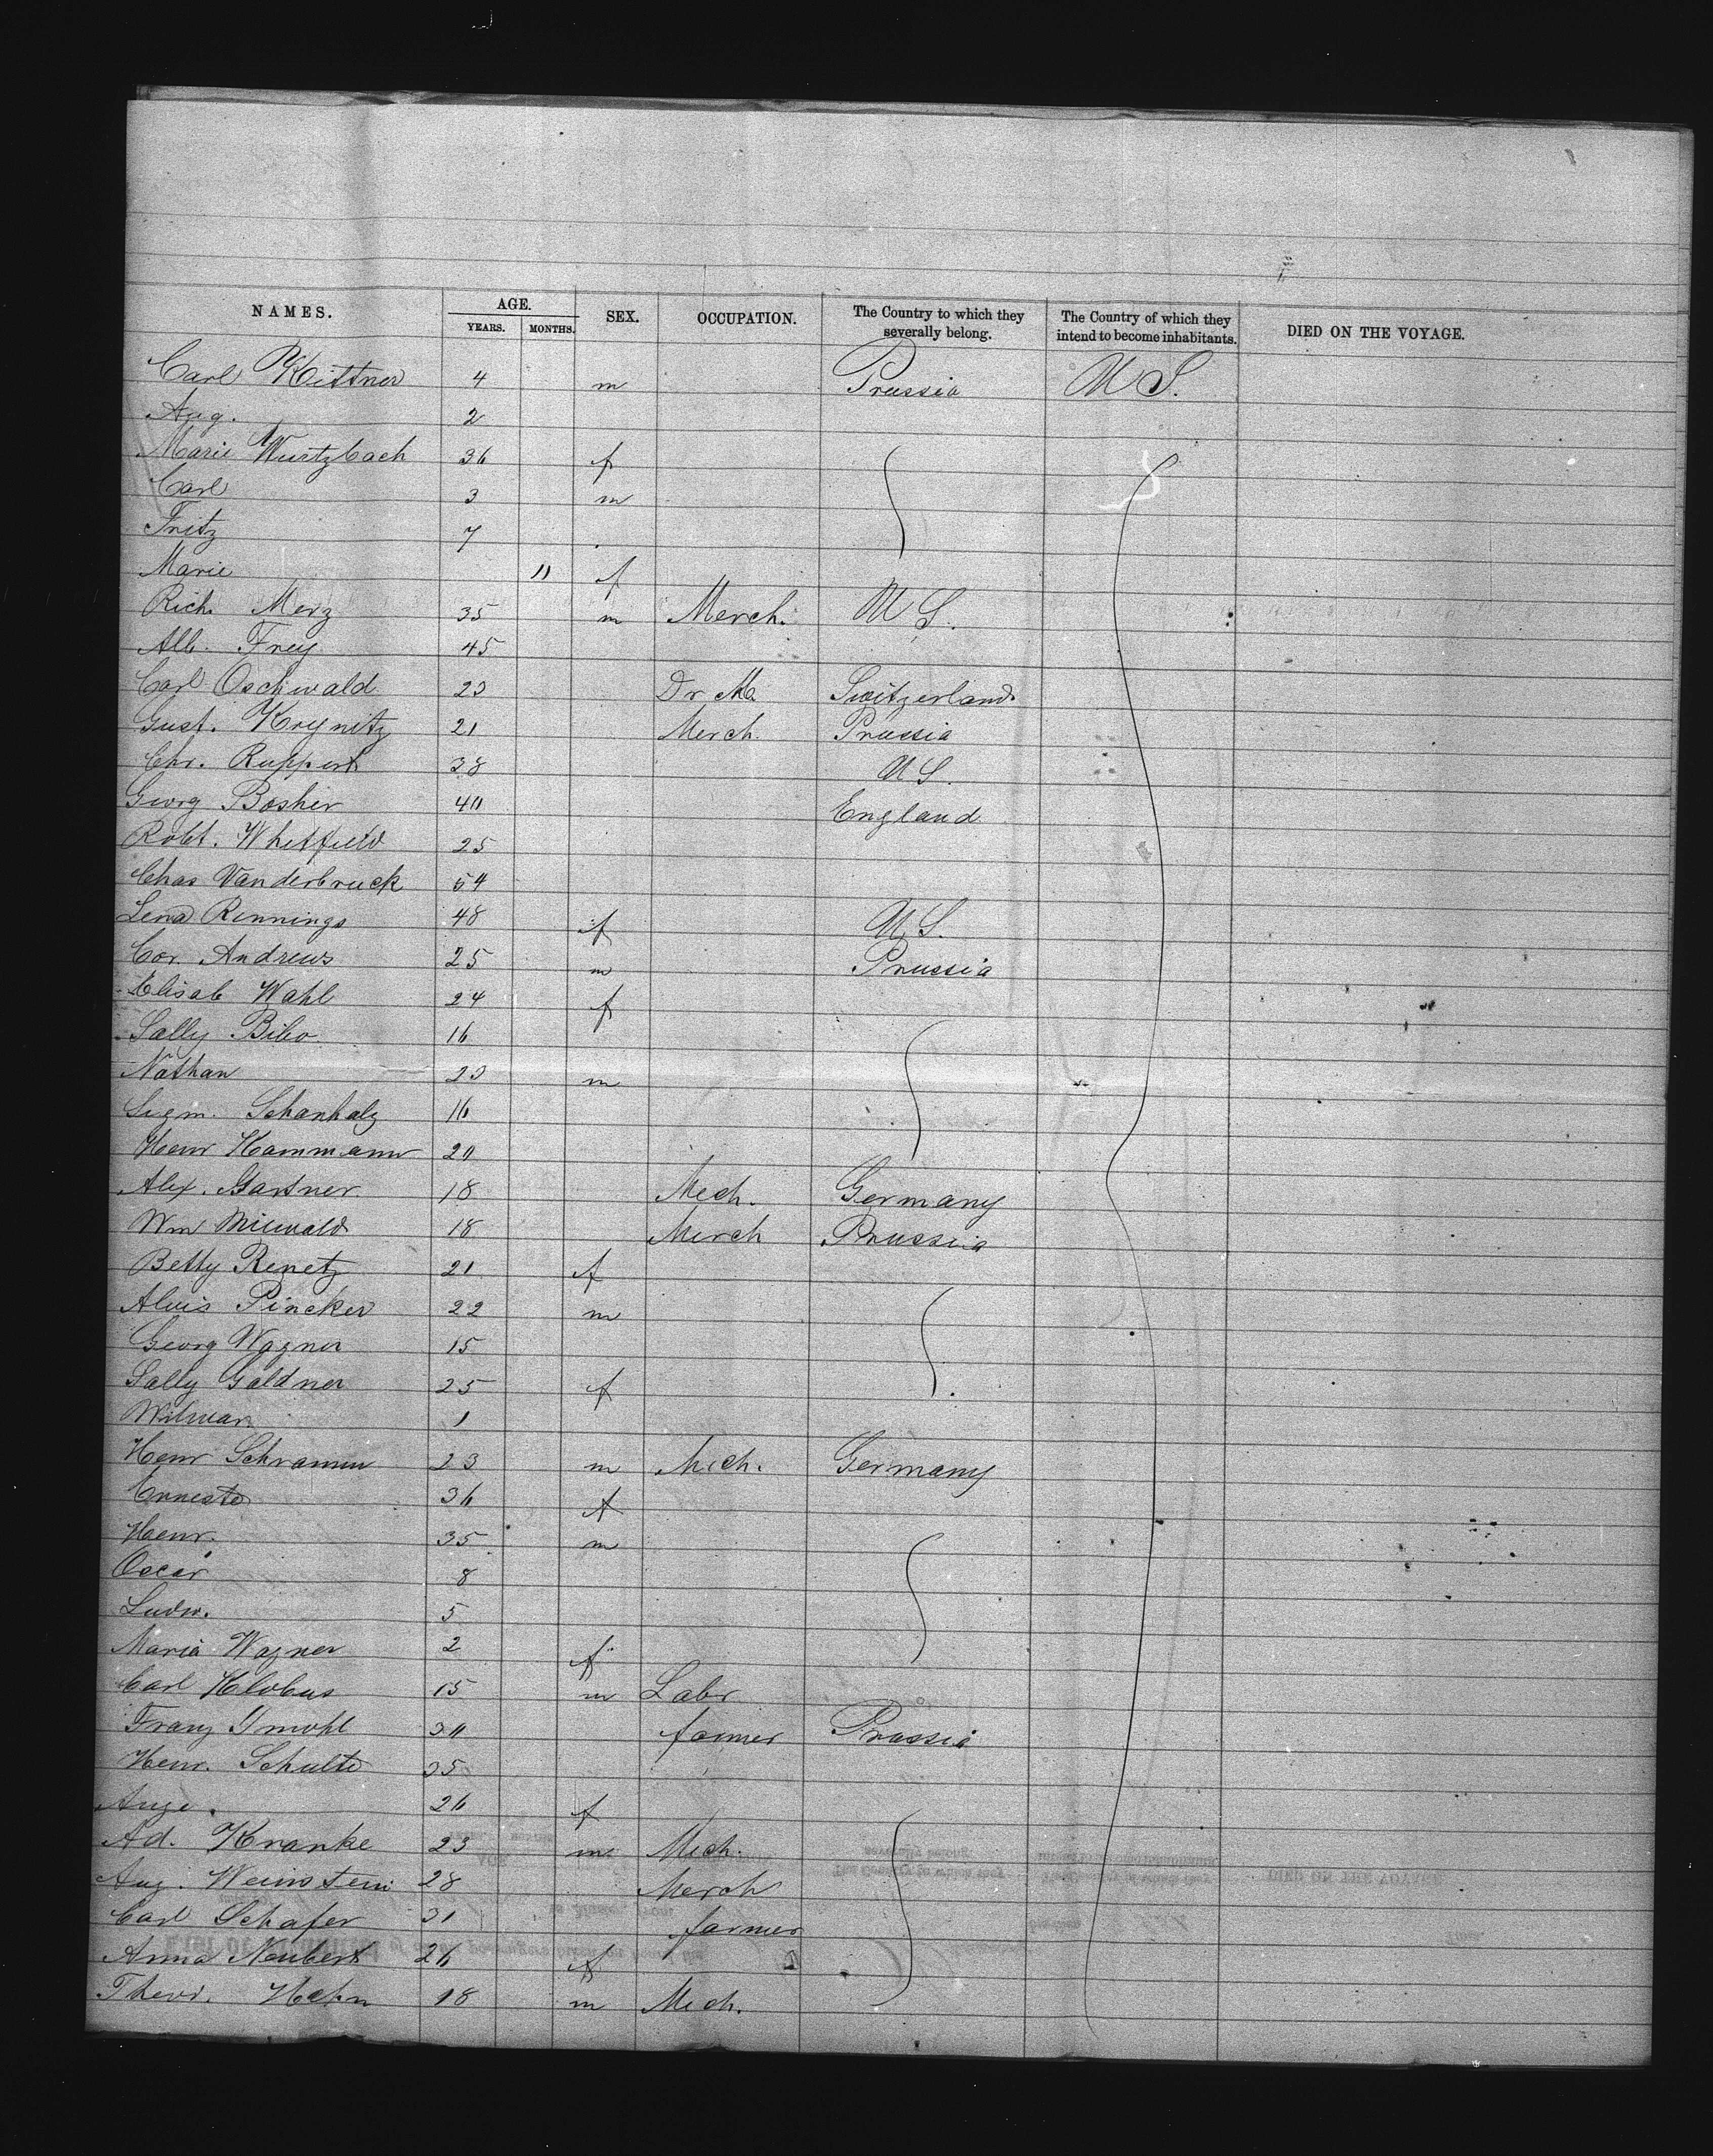 NAMES. AGE. SEX. OCCUPATION. The Country to which they severally belong. The Country of which they intend to become inhabitants. DIED ON THE VOYAGE.
YEARS. MONTHS.
Carl Kittner 4 m Prussia U S.
Aug. 2
Marie Wurtzbach 36 f
Carl 3 m
Fritz 7
Marie 11 f
Rich. Merz 35 m Merch. U S.
Alb. Frey 45
Carl Oschwald 23 Dr. Switzerland
Gust. Krynitz 21 Merch. Prussia
Chr. Ruppert 38 U S.
Georg Bosher 40 England
Robt. Whitfield 25
Chas Vanderbruck 54
Lena Rennings 48 f U S.
Cor. Andrews 25 m Prussia
Elisab Wahl 24 f
Sally Bibo 16
Nathan 23 m
Sigm. Schanhalz 16
Henr Hammann 20
Alex. Gartner 18 Mech. Germany
Wm Miewald 18 Merch Prussia
Betty Renetz 21 f
Alois Pincker 22 m
Georg Wagner 15
Sally Galdner 25 f
1
Henr Schramm 23 m Mech. Germany
Erneste 36 f
Henr. 35 m
Oscar 8
Ludw. 5
Maria Wagner 2 f
Carl Klobus 15 m Labr
Franz Gmohl 30 farmer Prussia
Henr. Schulte 35
Auge. 26 f
Ad. Kranke 23 m Mech.
Aug. Weinstein 28 Merch
Carl Schafer 31 farmer
Anna Neubert 26 f
Theod. Hahn 18 m Mech.